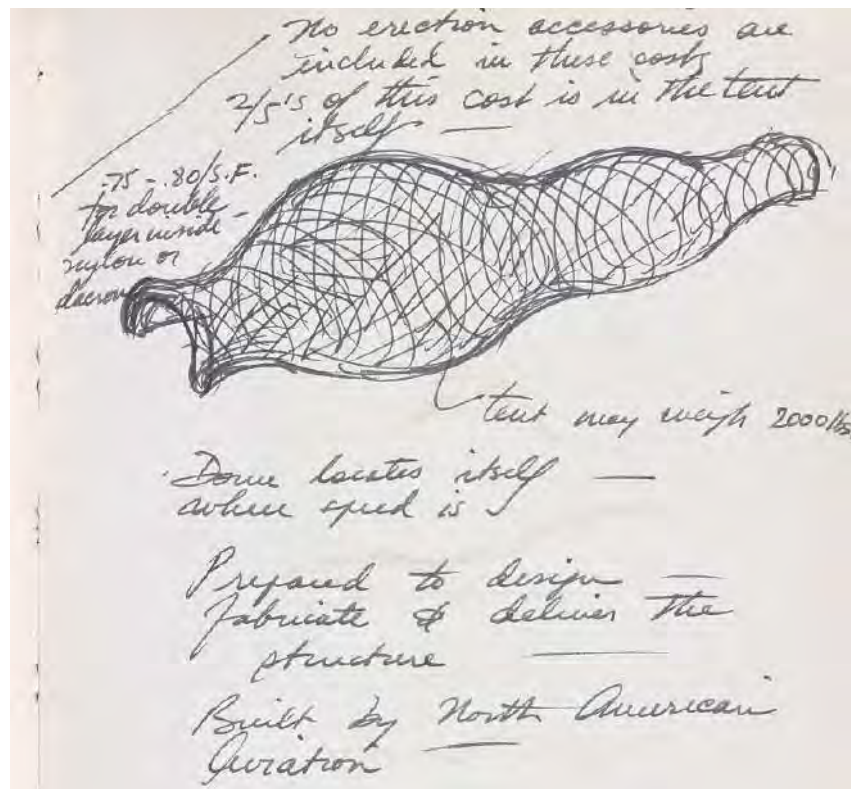 No erection accessories are
included in these costs
2/5's of this cost is in the tent
itself —
.75 - .80/S.F.
for double
layer inside -
nylon or
dacron
tent may weigh 2000 lbs.
Dome locates itself —
where speed is
Prepared to design —
fabricate & deliver the
structure —
Built by North American
Aviation —